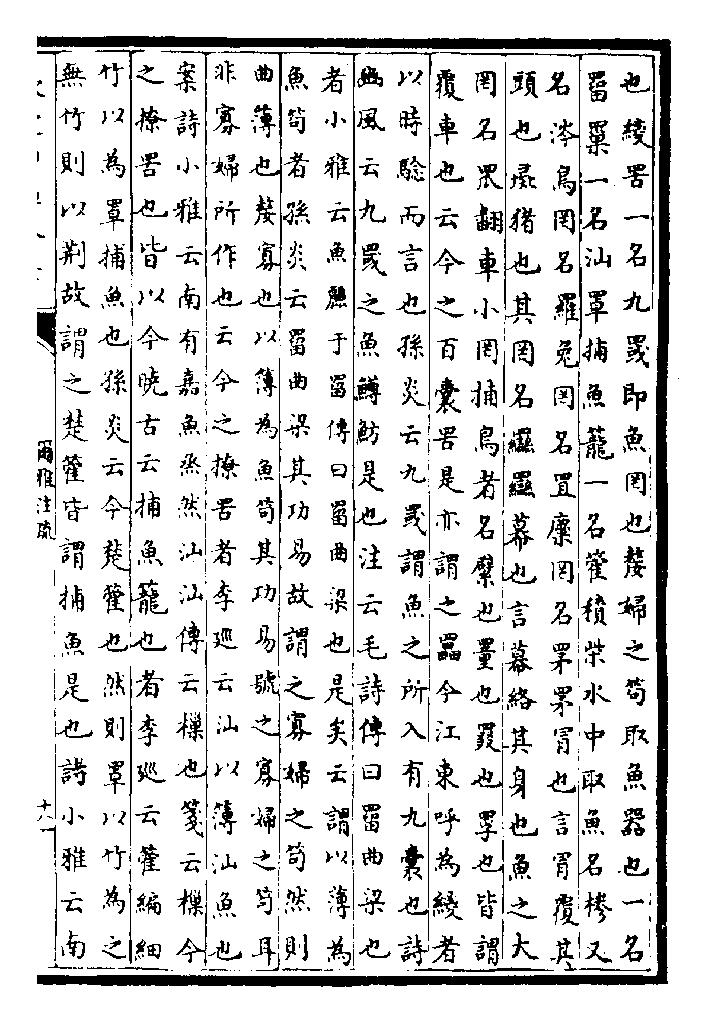 也緵罟一名九罭即魚罔也嫠婦之笱取魚器也一名
罶罺一名汕罩捕魚籠一名篧積柴水中取魚名椮又
名涔鳥罔名羅兔罔名罝麋罔名罞罞冒也言冒覆其
頭也彘猪也其罔名羉羉幕也言幕絡其身也魚之大
罔名罛翻車小罔捕鳥者名繴也罿也罬也罦也皆謂
覆車也云今之百囊罟是亦謂之䍡今江東呼為緵者
以時驗而言也孫炎云九罭謂魚之所入有九囊也詩
豳風云九罭之魚鱒魴是也注云毛詩傳曰罶曲梁也
者小雅云魚麗于罶傳曰罶曲梁也是矣云謂以薄為
魚笱者孫炎云罶曲梁其功易故謂之寡婦之笱然則
曲薄也嫠寡也以簿為魚笱其功易號之寡婦之笱耳
非寡婦所作也云今之撩罟者李廵云汕以簿汕魚也
案詩小雅云南有嘉魚烝然汕汕傳云樔也箋云樔今
之撩罟也皆以今曉古云捕魚籠也者李廵云篧編細
竹以為罩捕魚也孫炎云今楚篧也然則罩以竹為之
無竹則以荆故謂之楚篧皆謂捕魚是也詩小雅云南
爾雅注疏